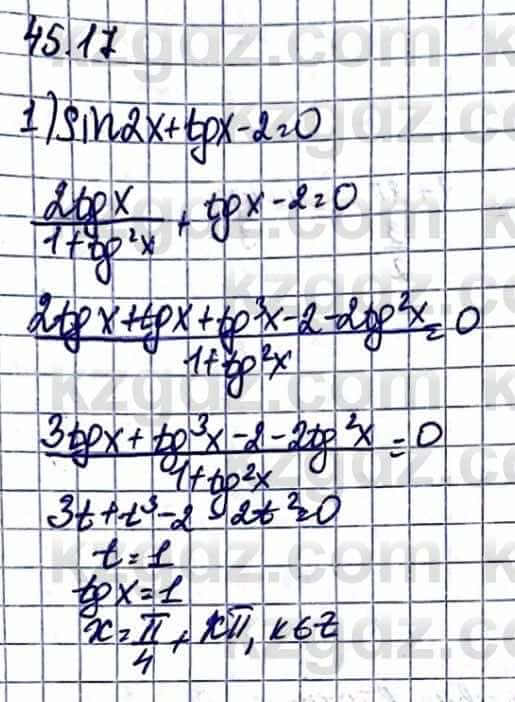 45.17
1) sin2x+tgx-2=0
2tgx/1+tg²x + tgx-2=0
2tgx+tgx+tg³x-2-2tg²x/1+tg²x=0
3tgx+tg³x-2-2tg²x/1+tg²x=0
3t+t³-2-2t²=0
t=1
tgx=1
x=π/4+kπ, k∈Z